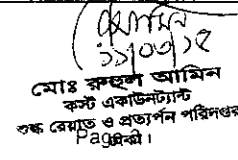 ১১/০৩/১৫
মোঃ রুহুল আমিন
কস্ট একাউনট্যান্ট
শুল্ক রেয়াত ও প্রত্যর্পন পরিদপ্তর
ঢাকা।
Page 2